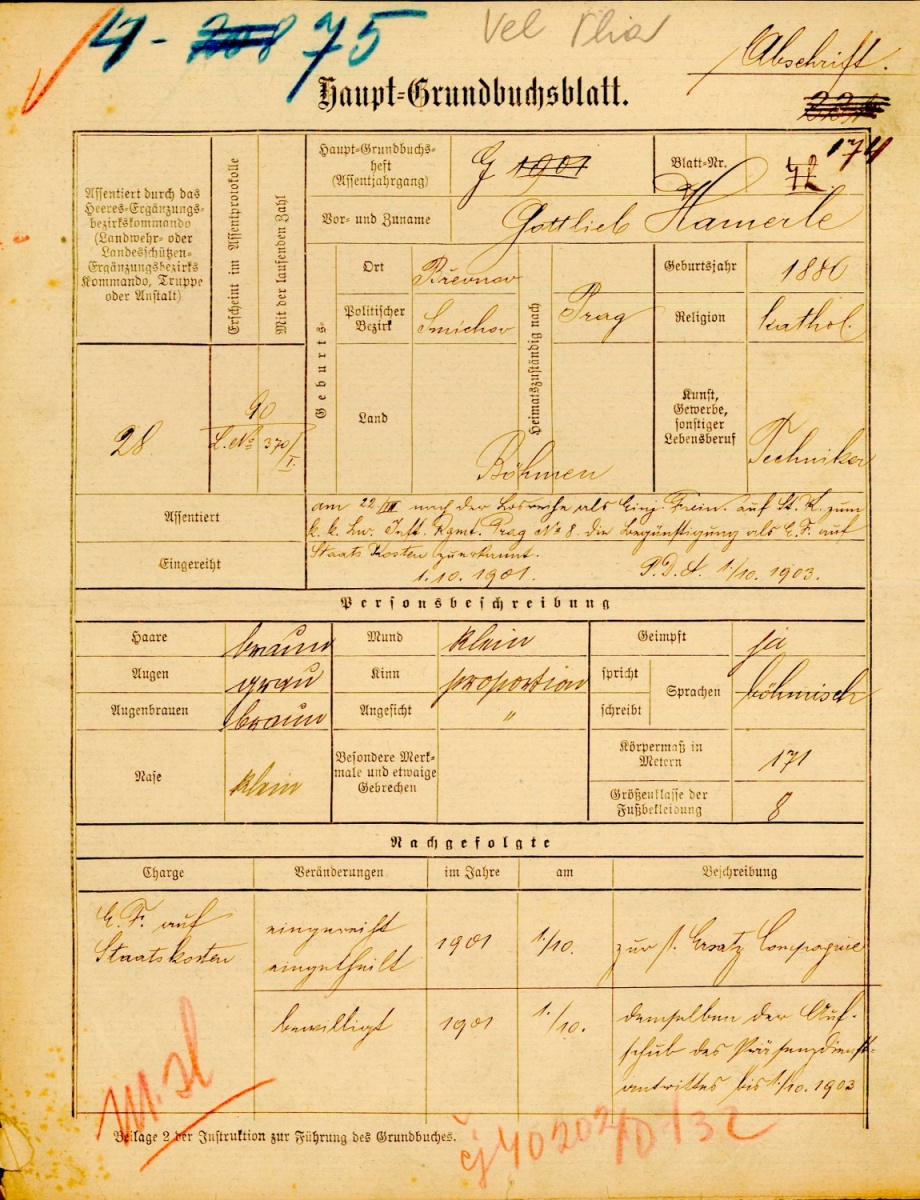 4 - 75
Abschrift.
Haupt-Grundbuchsblatt.
174
Assentiert durch das
Heeres-Ergänzungs-
bezirkskommando
(Landwehr- oder
Landesschützen-
Ergänzungsbezirks
Kommando, Truppe
oder Anstalt)
28
Erscheint im Assentprotokolle
Mit der laufenden Zahl
90
L. No 370/I.
Haupt-Grundbuchs-
heft
(Assentjahrgang)
G 1901
Blatt-Nr.
Vor- und Zuname
Gottlieb Hamerle
Geburts-
Ort
Břevnov
Politischer
Bezirk
Smichov
Land
Böhmen
Heimatszuständig nach
Prag
Geburtsjahr
1880
Religion
kathol.
Kunst,
Gewerbe,
sonstiger
Lebensberuf
Techniker
Assentiert
am 22/III nach der Losreihe als Einj. Freiw. auf St. K. zum
k. k. Lw. Inft. Rgmt. Prag No 8. die Begünstigung als E. F. auf
Staats Kosten zuerkannt.
Eingereiht
1.10. 1901. P. D. A. 1./10. 1903.
Personsbeschreibung
Haare braun
Augen grau
Augenbrauen braun
Nase klein
Mund klein
Kinn proportion
Angesicht "
Besondere Merk-
male und etwaige
Gebrechen
Geimpft ja
spricht
schreibt
Sprachen böhmisch
Körpermaß in
Metern
171
Größenklasse der
Fußbekleidung
8
Nachgefolgte
Charge Veränderungen im Jahre am Beschreibung
E. F. auf
Staatskosten
eingereiht
eingetheilt
1901 1./10.
zur Ersatz Compagnie
bewilligt 1901 1./10.
demselben der Auf-
schub des Präsenzdienst-
antrittes bis 1./10. 1903
Beilage 2 der Instruktion zur Führung des Grundbuches.